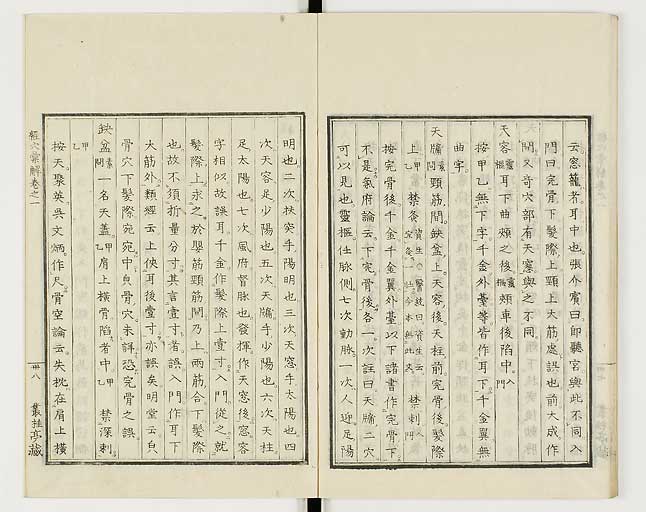 云窓籠者耳中也張介賓曰即聽宮與此不同入
門曰完骨下髮際上頸上大筋處誤也前大成作
䦨又奇穴部有天窓與之不同
天容靈耳下曲頰之後樞頰車後陷中入門
按甲乙無下字千金外臺等皆作耳下千金翼無
曲字
天牖素問頸筋間缺盆上天容後天柱前完骨後
上甲乙禁灸資生
按完骨後千金千金翼外臺以下諸書作完骨下
不是氣府論云下完骨後各一次註曰天牖二穴
可以見也靈樞任脉側七次動脉一次人迎足陽
明也二次扶突手陽明也三次天窓手太陽也四
次天容足少陽也五次天牖手少陽也六次天柱
足太陽也七次風府督脉也發揮作天容後窓容
字相似故誤耳千金作髮際上壹寸入門從之就
髮際上求之於嬰筋頸筋間乃上兩筋合下髮際
也故不須折量分寸其言壹寸者誤入門作耳下
大筋外類經云上俠耳後壹寸亦誤矣明堂云
骨穴下髮際宛宛中骨穴未詳恐完骨之誤
缺盆素問一名天蓋甲乙肩上橫骨陷者中甲乙禁深刺
甲乙
按天聚英吳文炳作尺骨空論云失枕在肩上橫
經穴彙解卷之一
卅八
叢桂亭藏